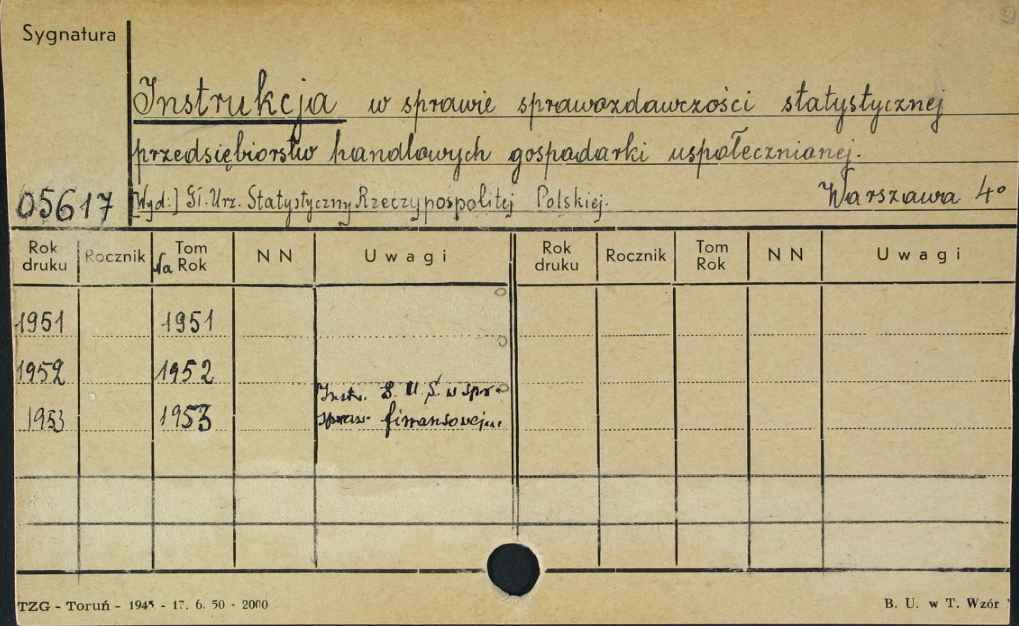 Sygnatura
Instrukcja w sprawie sprawozdawczości statystycznej
przedsiębiorstw handlowych gospodarki uspołecznionej.
05617 [Wyd:] Gł. Urz. Statystyczny Rzeczypospolitej Polskiej. Warszawa 4°
Rok druku Rocznik Na Tom Rok NN Uwagi Rok druku Rocznik Tom Rok NN Uwagi
1951 1951
1952 1952
Instr. G. U. S. w spr.
1953 1953 spraw. finansowej
TZG - Toruń - 1945 - 17. 6. 50 - 2000 B. U. w T. Wzór